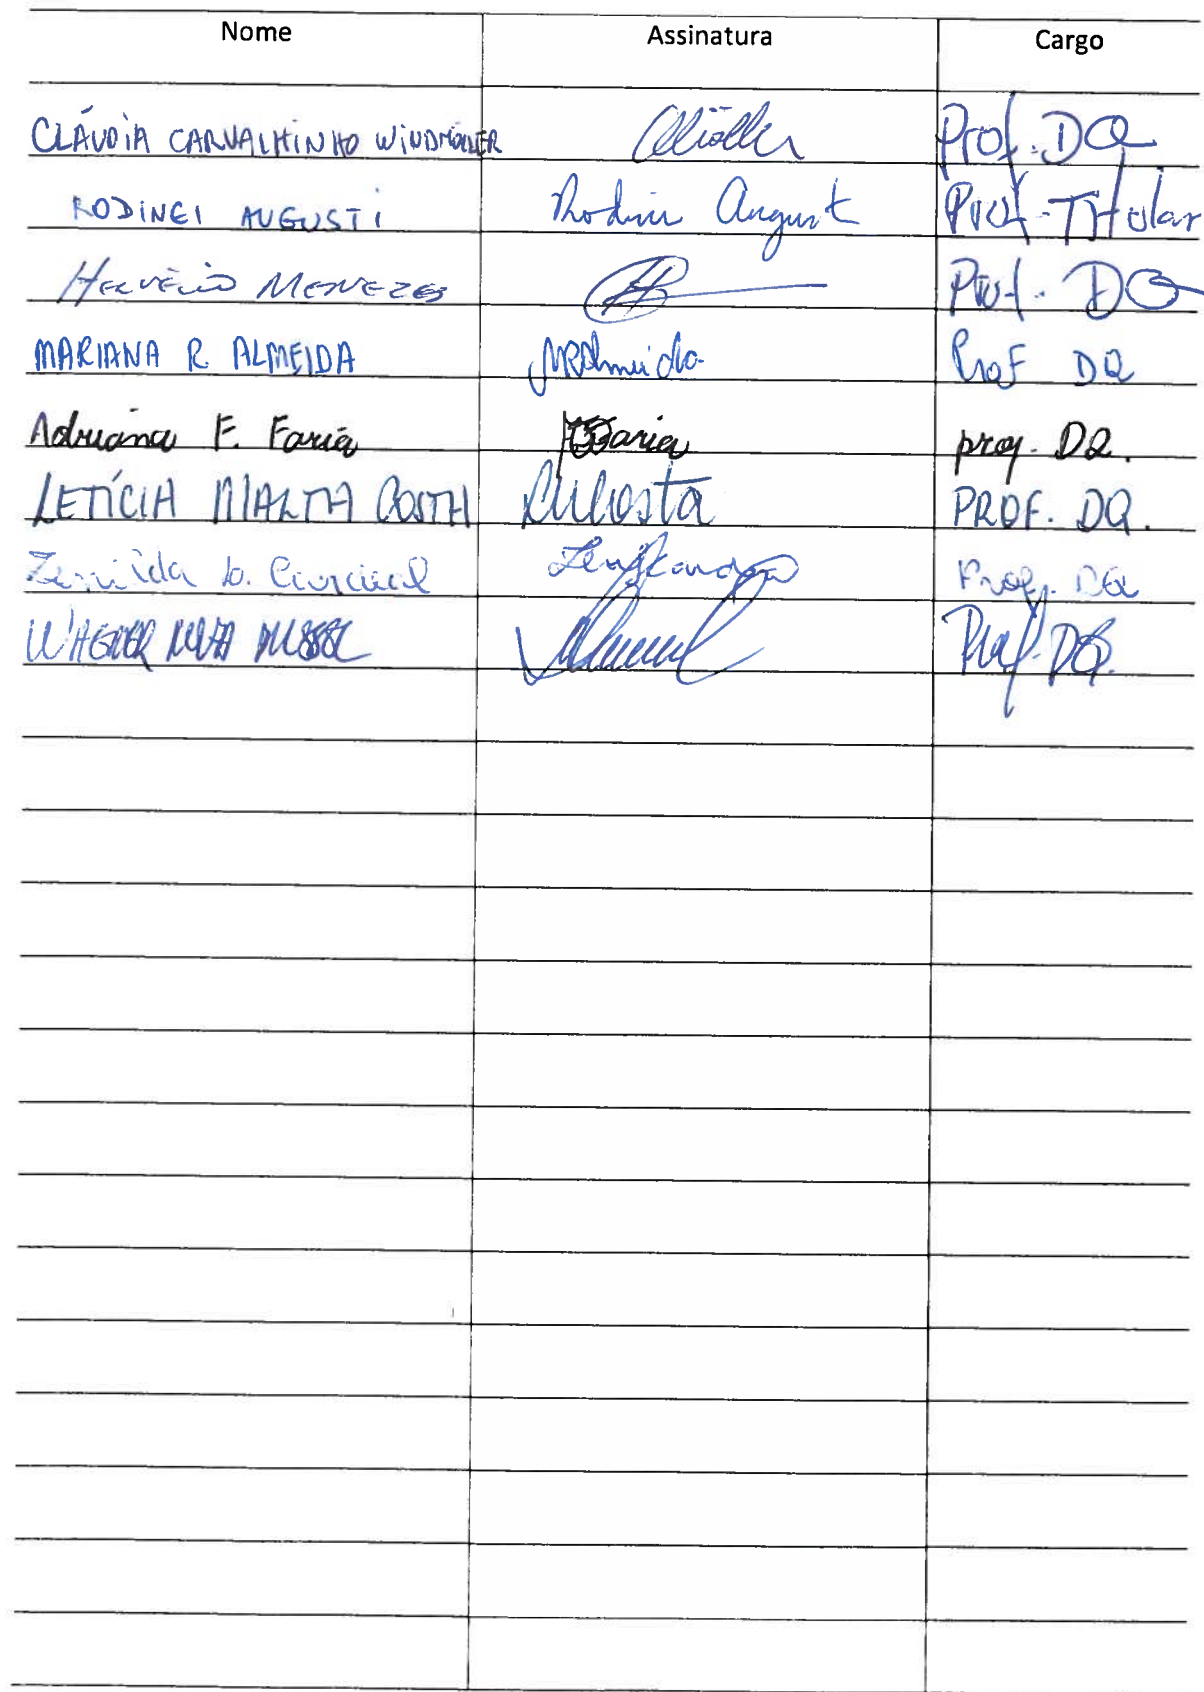 Nome Assinatura Cargo
CLÁUDIA CARVALHINHO WINDMÖLLER Prof. DQ
RODINEI AUGUSTI Rodinei Augusti Prof. Titular
HELVÉCIO MENEZES Prof. DQ
MARIANA R. ALMEIDA MRAlmeida Prof DQ
Adriana F. Faria Faria prof. DQ.
LETÍCIA MALTA COSTA LMCosta PROF. DQ.
Zenilda L. Cardeal Prof. DQ
WAGNER Prof. DQ.